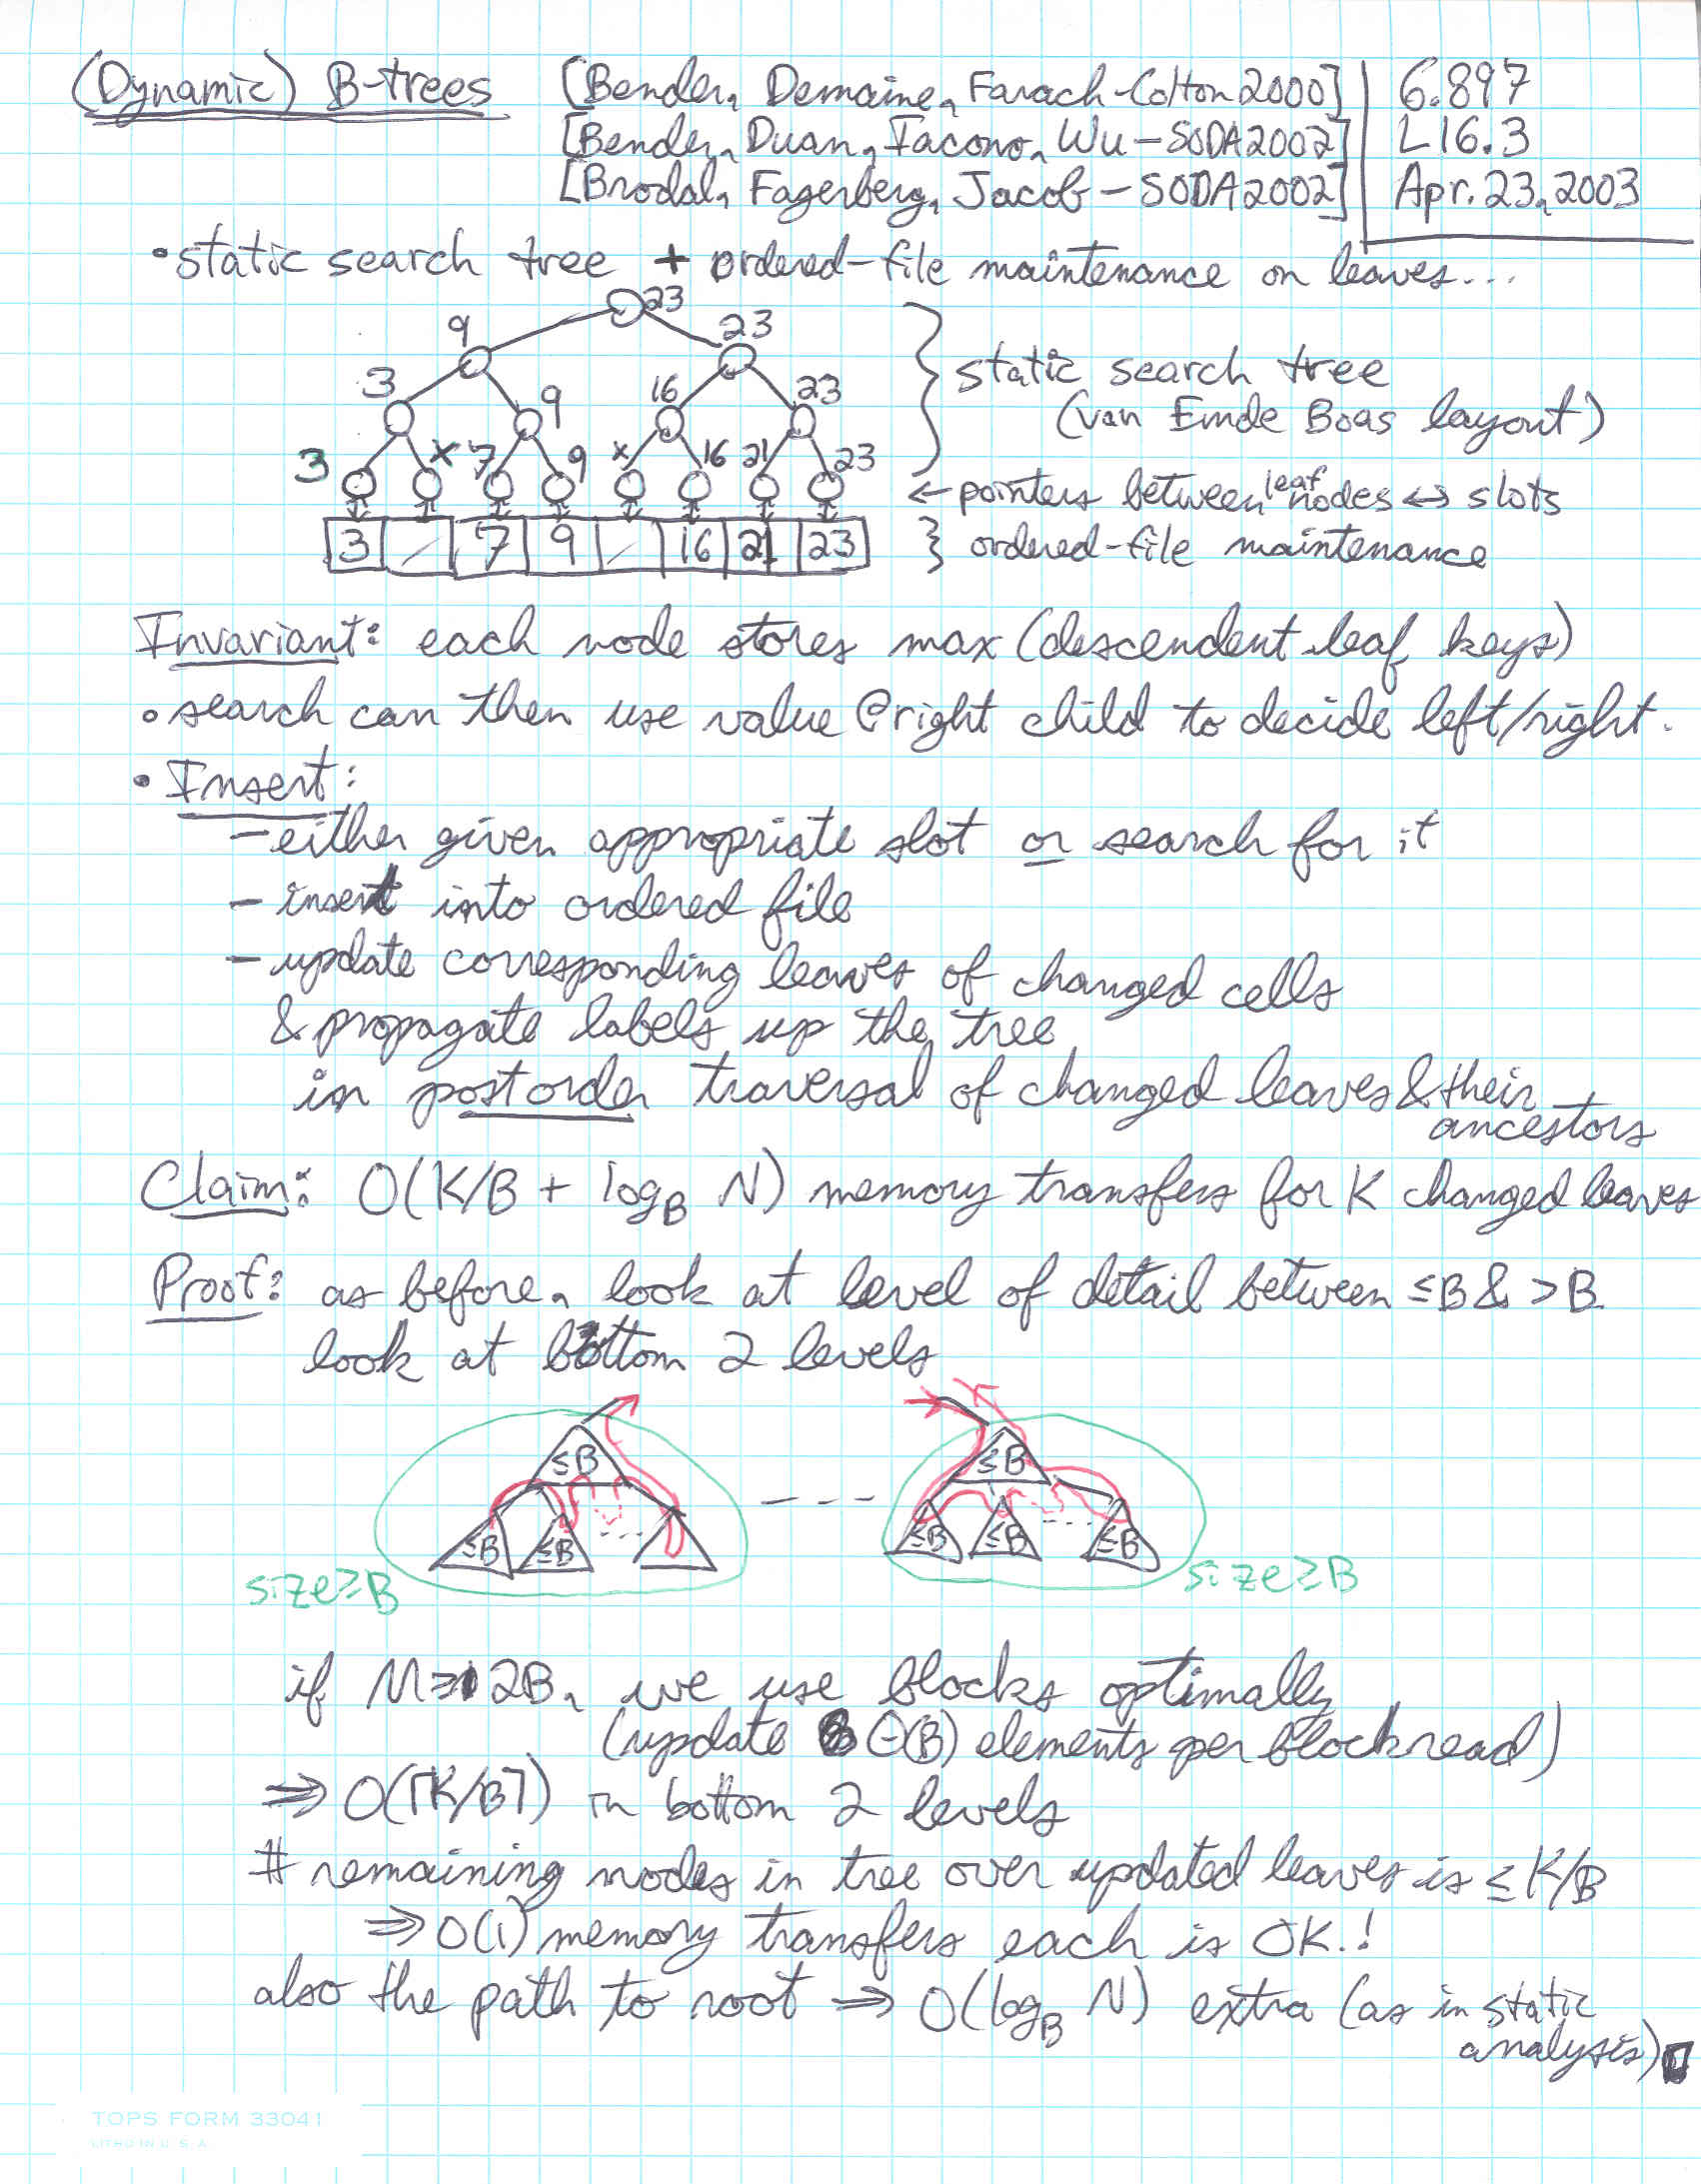 (Dynamic) B-trees [Bender, Demaine, Farach-Colton 2000] 6.897
[Bender, Duan, Iacono, Wu – SODA 2002] L16.3
[Brodal, Fagerberg, Jacob – SODA 2002] Apr. 23, 2003
• static search tree + ordered-file maintenance on leaves...
23
9 23
3 9 16 23
3 x 7 9 x 16 21 23
static search tree
(van Emde Boas layout)
← pointers between leaf nodes ↔ slots
3 – 7 9 – 16 21 23 } ordered-file maintenance
Invariant: each node stores max (descendent leaf keys)
• search can then use value @ right child to decide left/right.
• Insert:
– either given appropriate slot or search for it
– insert into ordered file
– update corresponding leaves of changed cells
& propagate labels up the tree
in postorder traversal of changed leaves & their
ancestors
Claim: O(K/B + log_B N) memory transfers for K changed leaves
Proof: as before, look at level of detail between ≤B & >B
look at bottom 2 levels
≤B ≤B
≤B ≤B .... --- ≤B ≤B .... ≤B
size≥B size≥B
if M≥2B, we use blocks optimally
(update Θ(B) elements per block read)
⇒ O(⌈K/B⌉) in bottom 2 levels
# remaining nodes in tree over updated leaves is ≤ K/B
⇒ O(1) memory transfers each is OK.!
also the path to root ⇒ O(log_B N) extra (as in static
analysis) □
TOPS FORM 33041
LITHO IN U. S. A.